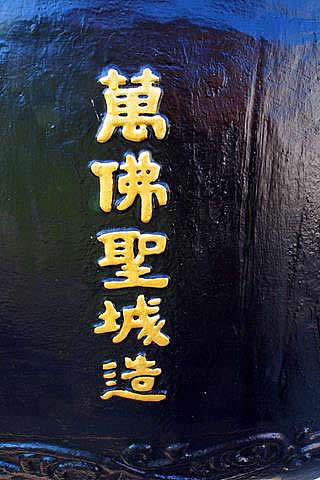 萬佛聖城造